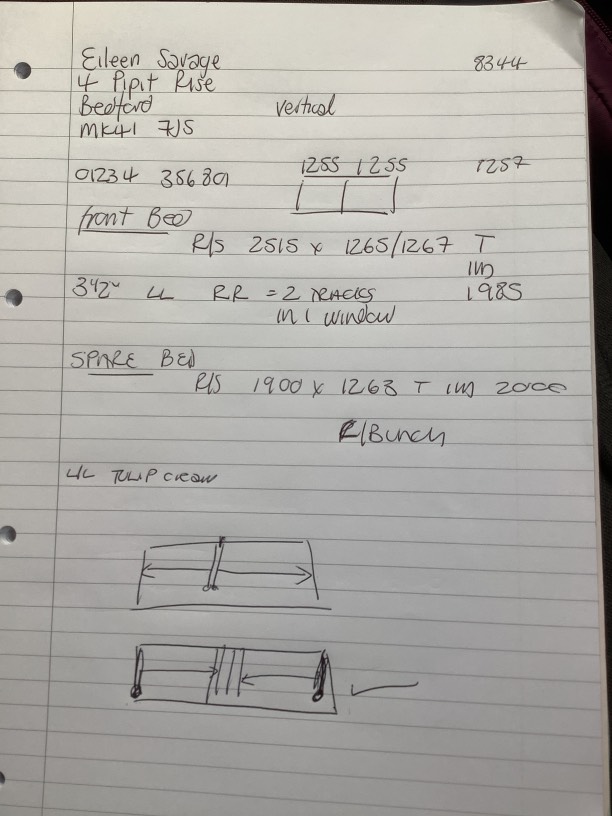 Eileen Savage 8344
4 Pipit Rise
Bedford Vertical
MK41 7JS
1255 1255 1257
01234 356801
front Bed
R/S 2515 x 1265/1267 T
1M
LL RR = 2 TRACKS 1985
IN 1 WINDOW
SPARE BED
R/S 1900 x 1263 T 1M 2000
/Bunch
LL TULIP CREAM